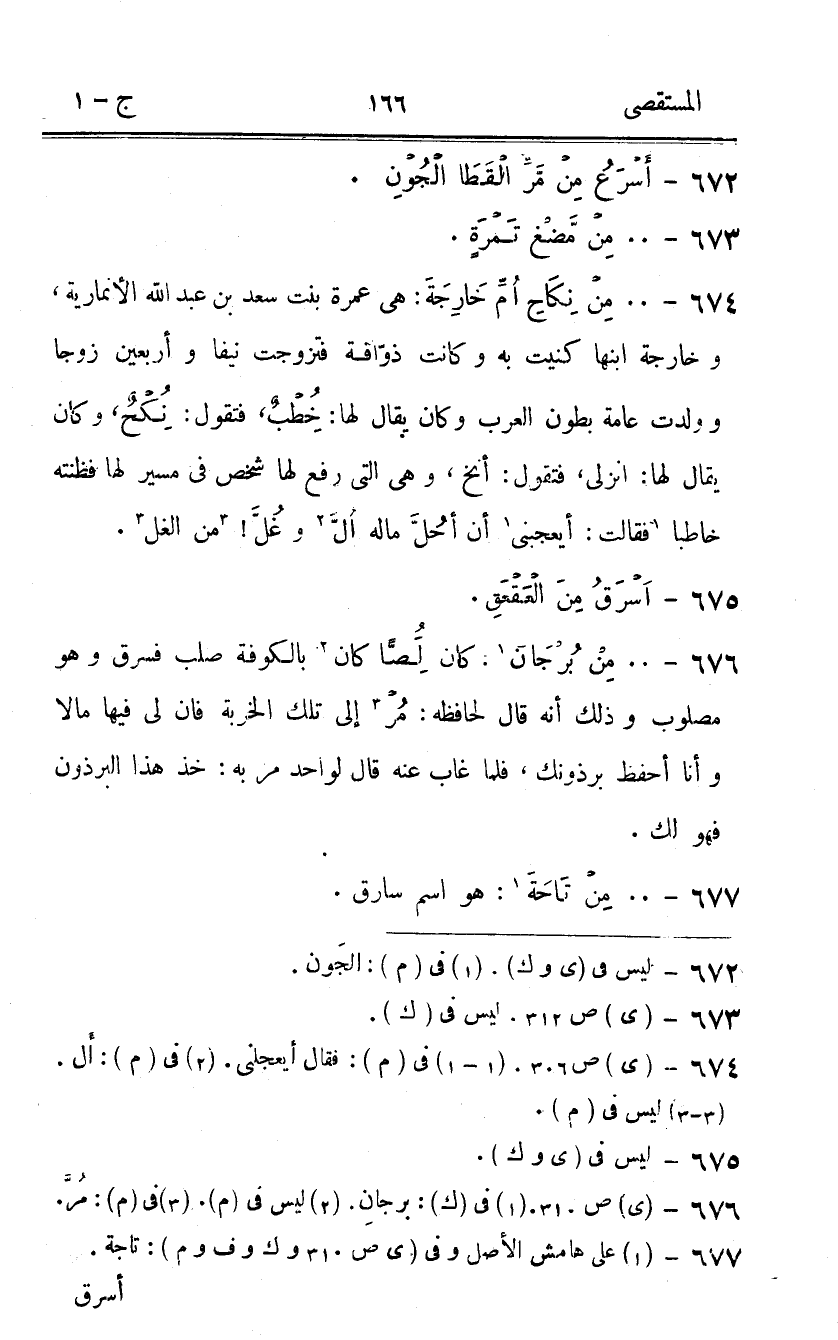 المستقصى ١٦٦ ج - ١
٦٧٢ - أَسْرَعُ مِنْ مَّرِّ الْقَطَا الْجُوْنِ .
٦٧٣ - ٠٠ مِنْ مَّضْغِ تَمْرَةٍ .
٦٧٤ - ٠٠ مِنْ نِكَاحِ اُمِّ خَارِجَةَ : هى عمرة بنت سعد بن عبد الله الأنمارية ،
و خارجة ابنها كنيت به و كانت ذوّاقة فتزوجت نيفا و أربعين زوجا
و ولدت عامة بطون العرب وكان يقال لها : خُطْبٌ ، فتقول : نُِكْحٌ ، وكان
يقال لها : انزلى ، فتقول : أنخ ، و هى التى رفع لها شخص فى مسير لها فظنته
خاطبا ١فقالت : أيعجبنى١ أن أحُلَّ ماله اُلَّ٢ و غُلَّ ! ٣من الغل٣ .
٦٧٥ - اَسْرَقُ مِنَ الْعَقْعَقِ .
٦٧٦ - ٠٠ مِنْ بُرْجَان١َ : كان لُِصًّا كان٢ بالكوفة صلب فسرق و هو
مصلوب و ذلك أنه قال لحافظه : مُرْ٣ إلى تلك الخربة فان لى فيها مالا
و أنا أحفظ برذونك ، فلما غاب عنه قال لواحد مر به : خذ هذا البرذون
فهو لك .
٦٧٧ - ٠٠ مِنْ تَاحَةَ١ : هو اسم سارق .
٦٧٢ - ليس فى (ى و ك) . (١) فى ( م ) : الجَون .
٦٧٣ - ( ى ) ص ٣١٢ . ليس فى ( ك ) .
٦٧٤ - ( ى ) ص ٣٠٦ . (١ - ١) فى ( م ) : فقال أيعجلنى . (٢) فى ( م ) : أَل .
(٣-٣) ليس فى ( م ) .
٦٧٥ - ليس فى ( ى و ك ) .
٦٧٦ - (ى) ص ٣١٠ . (١) فى (ك) : برجانِ . (٢) ليس فى (م) . (٣) فى (م) : مُرَّ .
٦٧٧ - (١) على هامش الأصل و فى ( ى ص ٣١٠ و ك و ف و م ) : تاجة .
أسرق